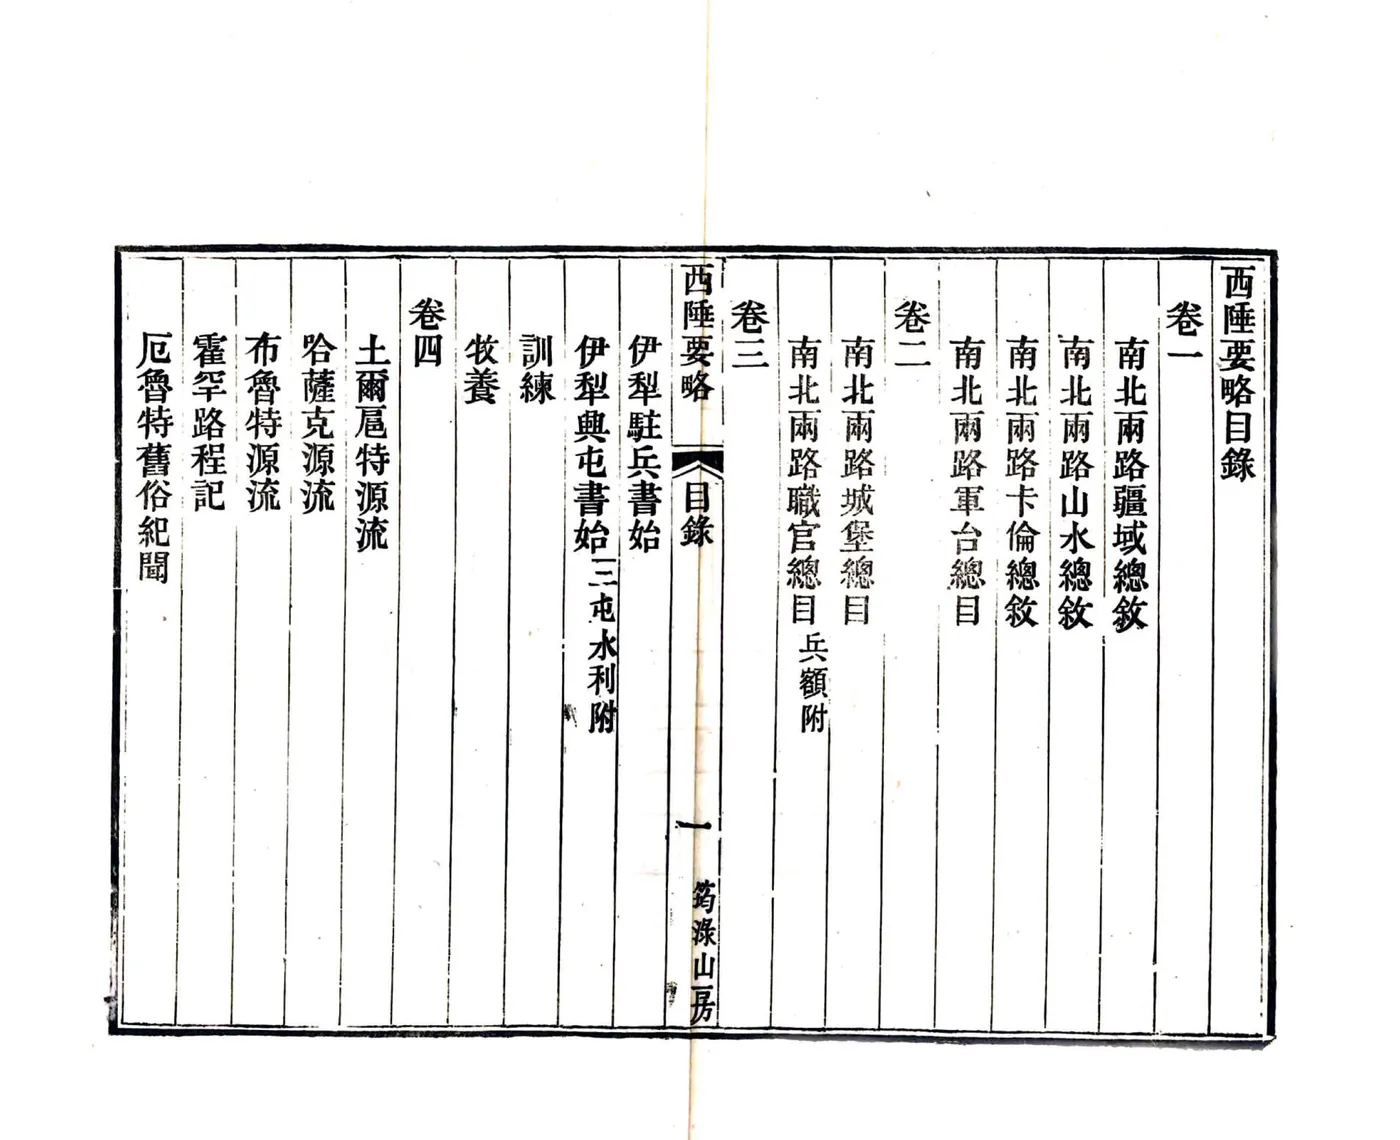 西陲要略目錄
卷一
南北兩路疆域總敘
南北兩路山水總敘
南北兩路卡倫總敘
南北兩路軍台總目
卷二
南北兩路城堡總目
南北兩路職官總目 兵額附
卷三
西陲要略 目錄 一 筠淥山房
伊犁駐兵書始
伊犁興屯書始 三屯水利附
訓練
牧養
卷四
土爾扈特源流
哈薩克源流
布魯特源流
霍罕路程記
厄魯特舊俗紀聞